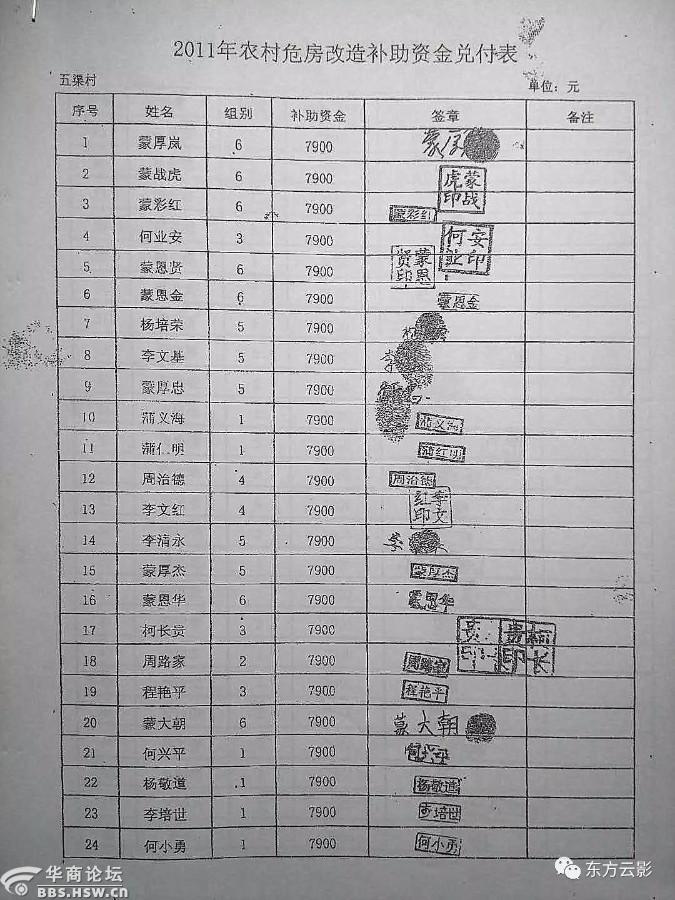 2011年农村危房改造补助资金兑付表
五渠村 单位：元
序号 姓名 组别 补助资金 签章 备注
1 蒙厚岚 6 7900 蒙厚
2 蒙战虎 6 7900 蒙战虎印
3 蒙彩红 6 7900 蒙彩红
4 何业安 3 7900 何业安印
5 蒙恩贤 6 7900 蒙恩贤印
6 蒙恩金 6 7900 蒙恩金
7 杨培荣 5 7900
8 李文基 5 7900 李
9 蒙厚忠 5 7900
10 蒲义海 1 7900 蒲义海
11 蒲仁明 1 7900 蒲红明
12 周治德 4 7900 周治德
13 李文红 4 7900 李文红印
14 李清永 5 7900 李
15 蒙厚杰 5 7900 蒙厚杰
16 蒙恩华 6 7900 蒙恩华
17 柯长贵 3 7900 柯长贵印
18 周路家 2 7900 周路家
19 程艳平 3 7900 程艳平
20 蒙大朝 6 7900 蒙大朝
21 何兴平 1 7900 何兴平
22 杨敬道 1 7900 杨敬道
23 李培世 1 7900 李培世
24 何小勇 1 7900 何小勇
华商论坛
BBS.HSW.CN
东方云影